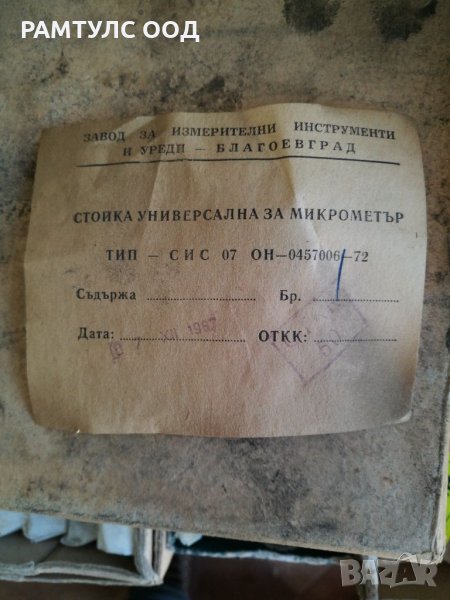 РАМТУЛС ООД
ЗАВОД ЗА ИЗМЕРИТЕЛНИ ИНСТРУМЕНТИ
И УРЕДИ — БЛАГОЕВГРАД
СТОЙКА УНИВЕРСАЛНА ЗА МИКРОМЕТЪР
ТИП — СИС 07 ОН—0457006—72
Съдържа ........ Бр. 1
Дата: XII 1987 ОТКК:
BAZAR